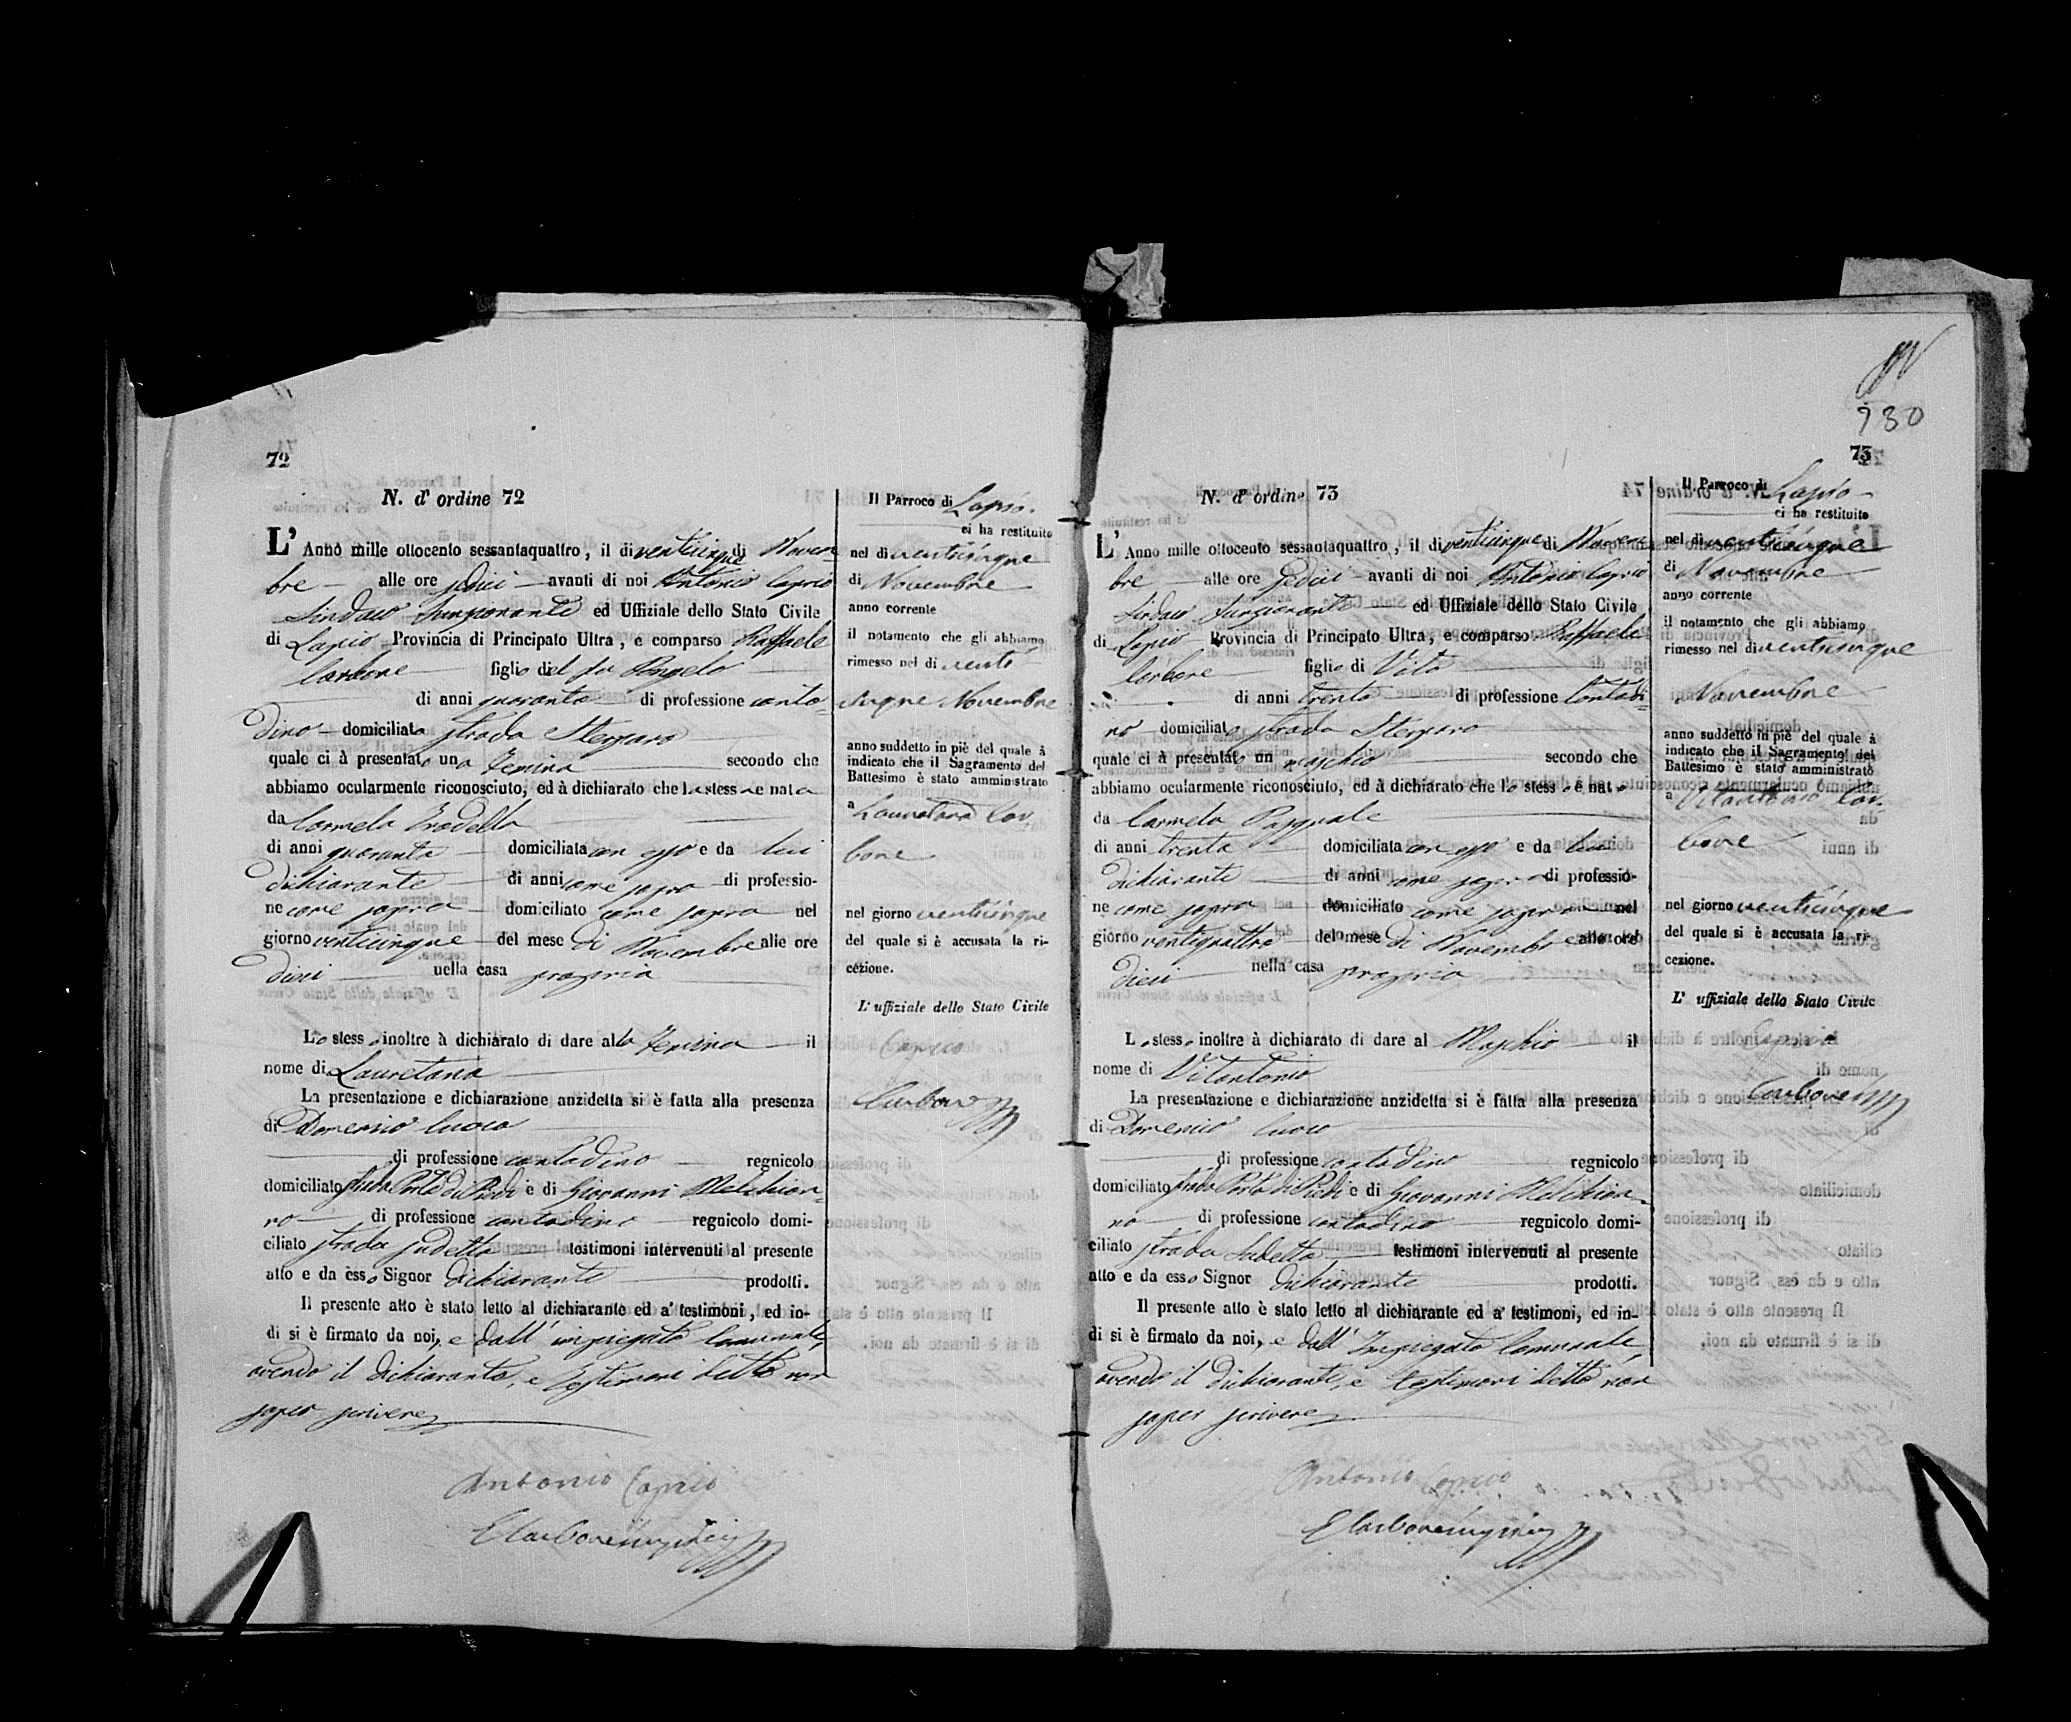 72
N. d' ordine 72
L' Anno mille ottocento sessantaquattro, il di venticinque di Novem-
bre alle ore sedici avanti di noi Antonio Caprio
Sindaco Funzionante ed Uffiziale dello Stato Civile
di Lapio Provincia di Principato Ultra, e comparso Raffaele
Carbone figlio del fu Angelo
di anni quaranta di professione conta-
dino domiciliato strada Sterparo
quale ci à presentato una Femina secondo che
abbiamo ocularmente riconosciuto, ed à dichiarato che la stessa è nata
da Carmela
di anni quaranta domiciliata con esso e da lui
dichiarante di anni come sopra di professio-
ne come sopra domiciliato come sopra nel
giorno venticinque del mese di Novembre alle ore
dieci nella casa propria
Lo stesso inoltre à dichiarato di dare alla Femina il
nome di Lauretana
La presentazione e dichiarazione anzidetta si è fatta alla presenza
di Domenico Cuoco
di professione contadino regnicolo
domiciliato strada Porta di Piedi e di Giovanni Melchion-
no di professione contadino regnicolo domi-
ciliato strada sudetta testimoni intervenuti al presente
atto e da esso Signor dichiarante prodotti.
Il presente atto è stato letto al dichiarante ed a' testimoni, ed in-
di si è firmato da noi, e dall' impiegato Comunale,
avendo il dichiarante, e testimoni detto non
saper scrivere
Antonio Caprio
Il Parroco di Lapio
ci ha restituito
nel dì venticinque
di Novembre
anno corrente
il notamento che gli abbiamo
rimesso nel di venti
cinque Novembre
anno suddetto in piè del quale à
indicato che il Sagramento del
Battesimo è stato amministrato
a Lauretana Car-
bone
nel giorno venticinque
del quale si è accusata la ri-
cezione.
L' uffiziale dello Stato Civile
Caprio
Carbone
930
73
N. d' ordine 73
L' Anno mille ottocento sessantaquattro, il di venticinque di Novem-
bre alle ore sedici avanti di noi Antonio Caprio
Sindaco Funzionante ed Uffiziale dello Stato Civile
di Lapio Provincia di Principato Ultra, e comparso Raffaele
Carbone figlio di Vito
di anni trenta di professione Contadi-
no domiciliato strada Sterparo
quale ci à presentato un maschio secondo che
abbiamo ocularmente riconosciuto, ed à dichiarato che lo stesso è nato
da Carmela Pasquale
di anni trenta domiciliata con esso e da lui
dichiarante di anni come sopra di professio-
ne come sopra domiciliato come sopra nel
giorno ventiquattro del mese di Novembre alle ore
dieci nella casa propria
Lo stesso inoltre à dichiarato di dare al Maschio il
nome di Vitantonio
La presentazione e dichiarazione anzidetta si è fatta alla presenza
di Domenico Cuoco
di professione contadino regnicolo
domiciliato strada Porta di Piedi e di Giovanni Melchion-
no di professione contadino regnicolo domi-
ciliato strada Sudetta testimoni intervenuti al presente
atto e da esso Signor dichiarante prodotti.
Il presente atto è stato letto al dichiarante ed a' testimoni, ed in-
di si è firmato da noi, e dall' Impiegato Comunale,
avendo il dichiarante, e testimoni detto non
saper scrivere
Antonio Caprio
Il Parroco di Lapio
ci ha restituito
nel di venticinque
di Novembre
anno corrente
il notamento che gli abbiamo
rimesso nel di venticinque
Novembre
anno suddetto in piè del quale à
indicato che il Sagramento del
Battesimo è stato amministrato
a Vitantonio Car-
bone
nel giorno venticinque
del quale si è accusata la ri-
cezione.
L' uffiziale dello Stato Civile
Caprio
Carbone